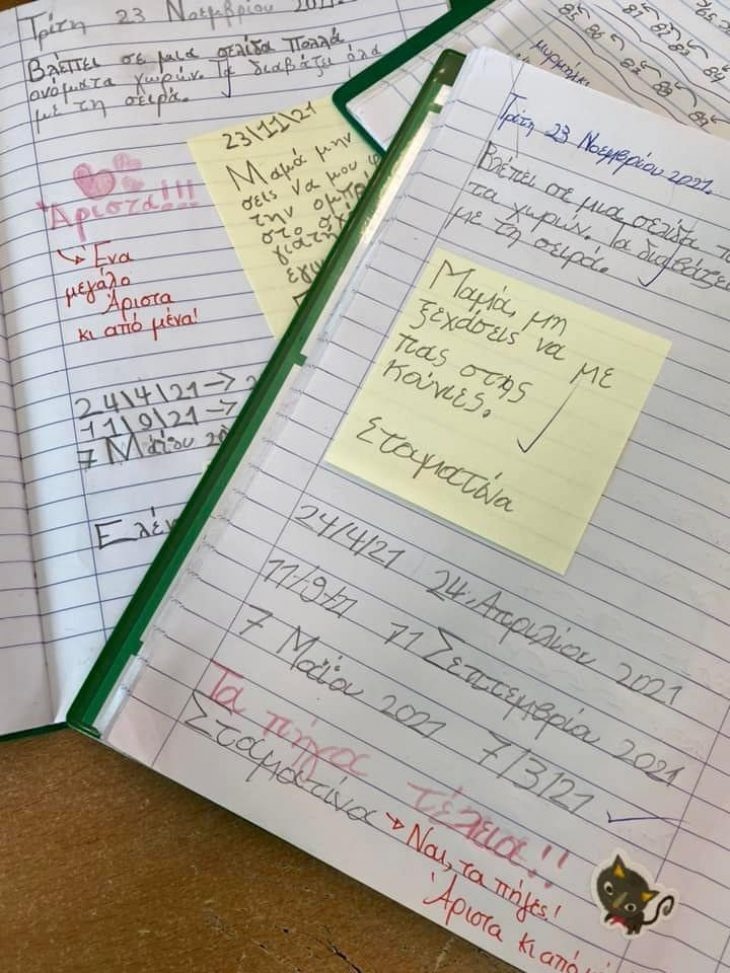 Τρίτη 23 Νοεμβρίου
Βλέπει σε μια σελίδα πολλά
ονόματα χωρών. Τα διαβάζει όλα
με τη σειρά.
Άριστα!!!
Ένα
μεγάλο
Άριστα
κι από μένα!
24\4\21 →
11\9\21 →
7 Μαΐου
23\11\21
Μαμά μην
σεις να μου
την ομπρ
στο σχ
γιατί
εγιν
85 86 87
μυρμήγκι
Τρίτη 23 Νοεμβρίου 2021.
Βλέπει σε μια σελίδα
τα χωρών. Τα διαβάζει
με τη σειρά.
Μαμά, μη
ξεχάσεις να με
πας στης
κούνιες.
Σταματίνα
24/4/21 24 Απριλίου 2021
11/9/21 11 Σεπτεμβρίου 2021
7 Μαΐου 2021 7/3/21
Τα πήγα τέλεια!!
Σταματίνα
Ναι, τα πήγες!
Άριστα κι από